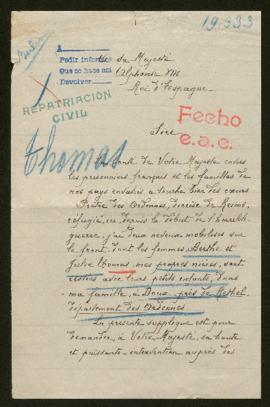 19.333
A
Pedir informes
Que no hace así
Devolver
REPATRIACION
CIVIL
Sa Majesté
Alphonse XIII
Roi d'Espagne
Fecho
e.a.e.
Thomas
Sire
La bonté de Votre Majesté envers
les prisonniers français et les familles de
nos pays envahis a touché bien des cœurs
Prêtre des Ardennes, diocèse de Reims,
réfugié ici depuis le début de
guerre, j'ai deux neveux mobilisés sur
le front, dont les femmes, Berthe et
Thomas, mes propres nièces, sont
restées avec leurs petits enfants, dans
ma famille, à près de Rethel,
département des Ardennes.
La présente supplique est pour
demander à Votre Majesté, sa haute
et puissante intervention auprès des